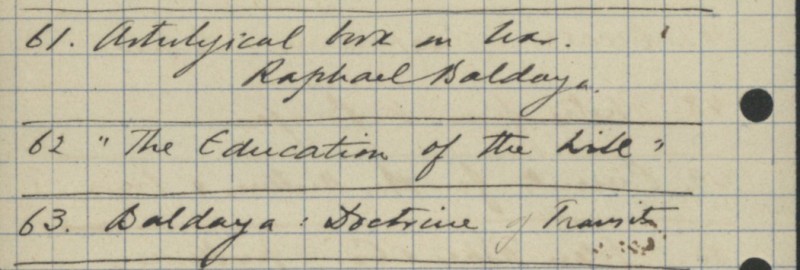 61. Astrological book on War.
Raphael Baldaya.
62 "The Education of the Will"
63. Baldaya: Doctrine of Transits